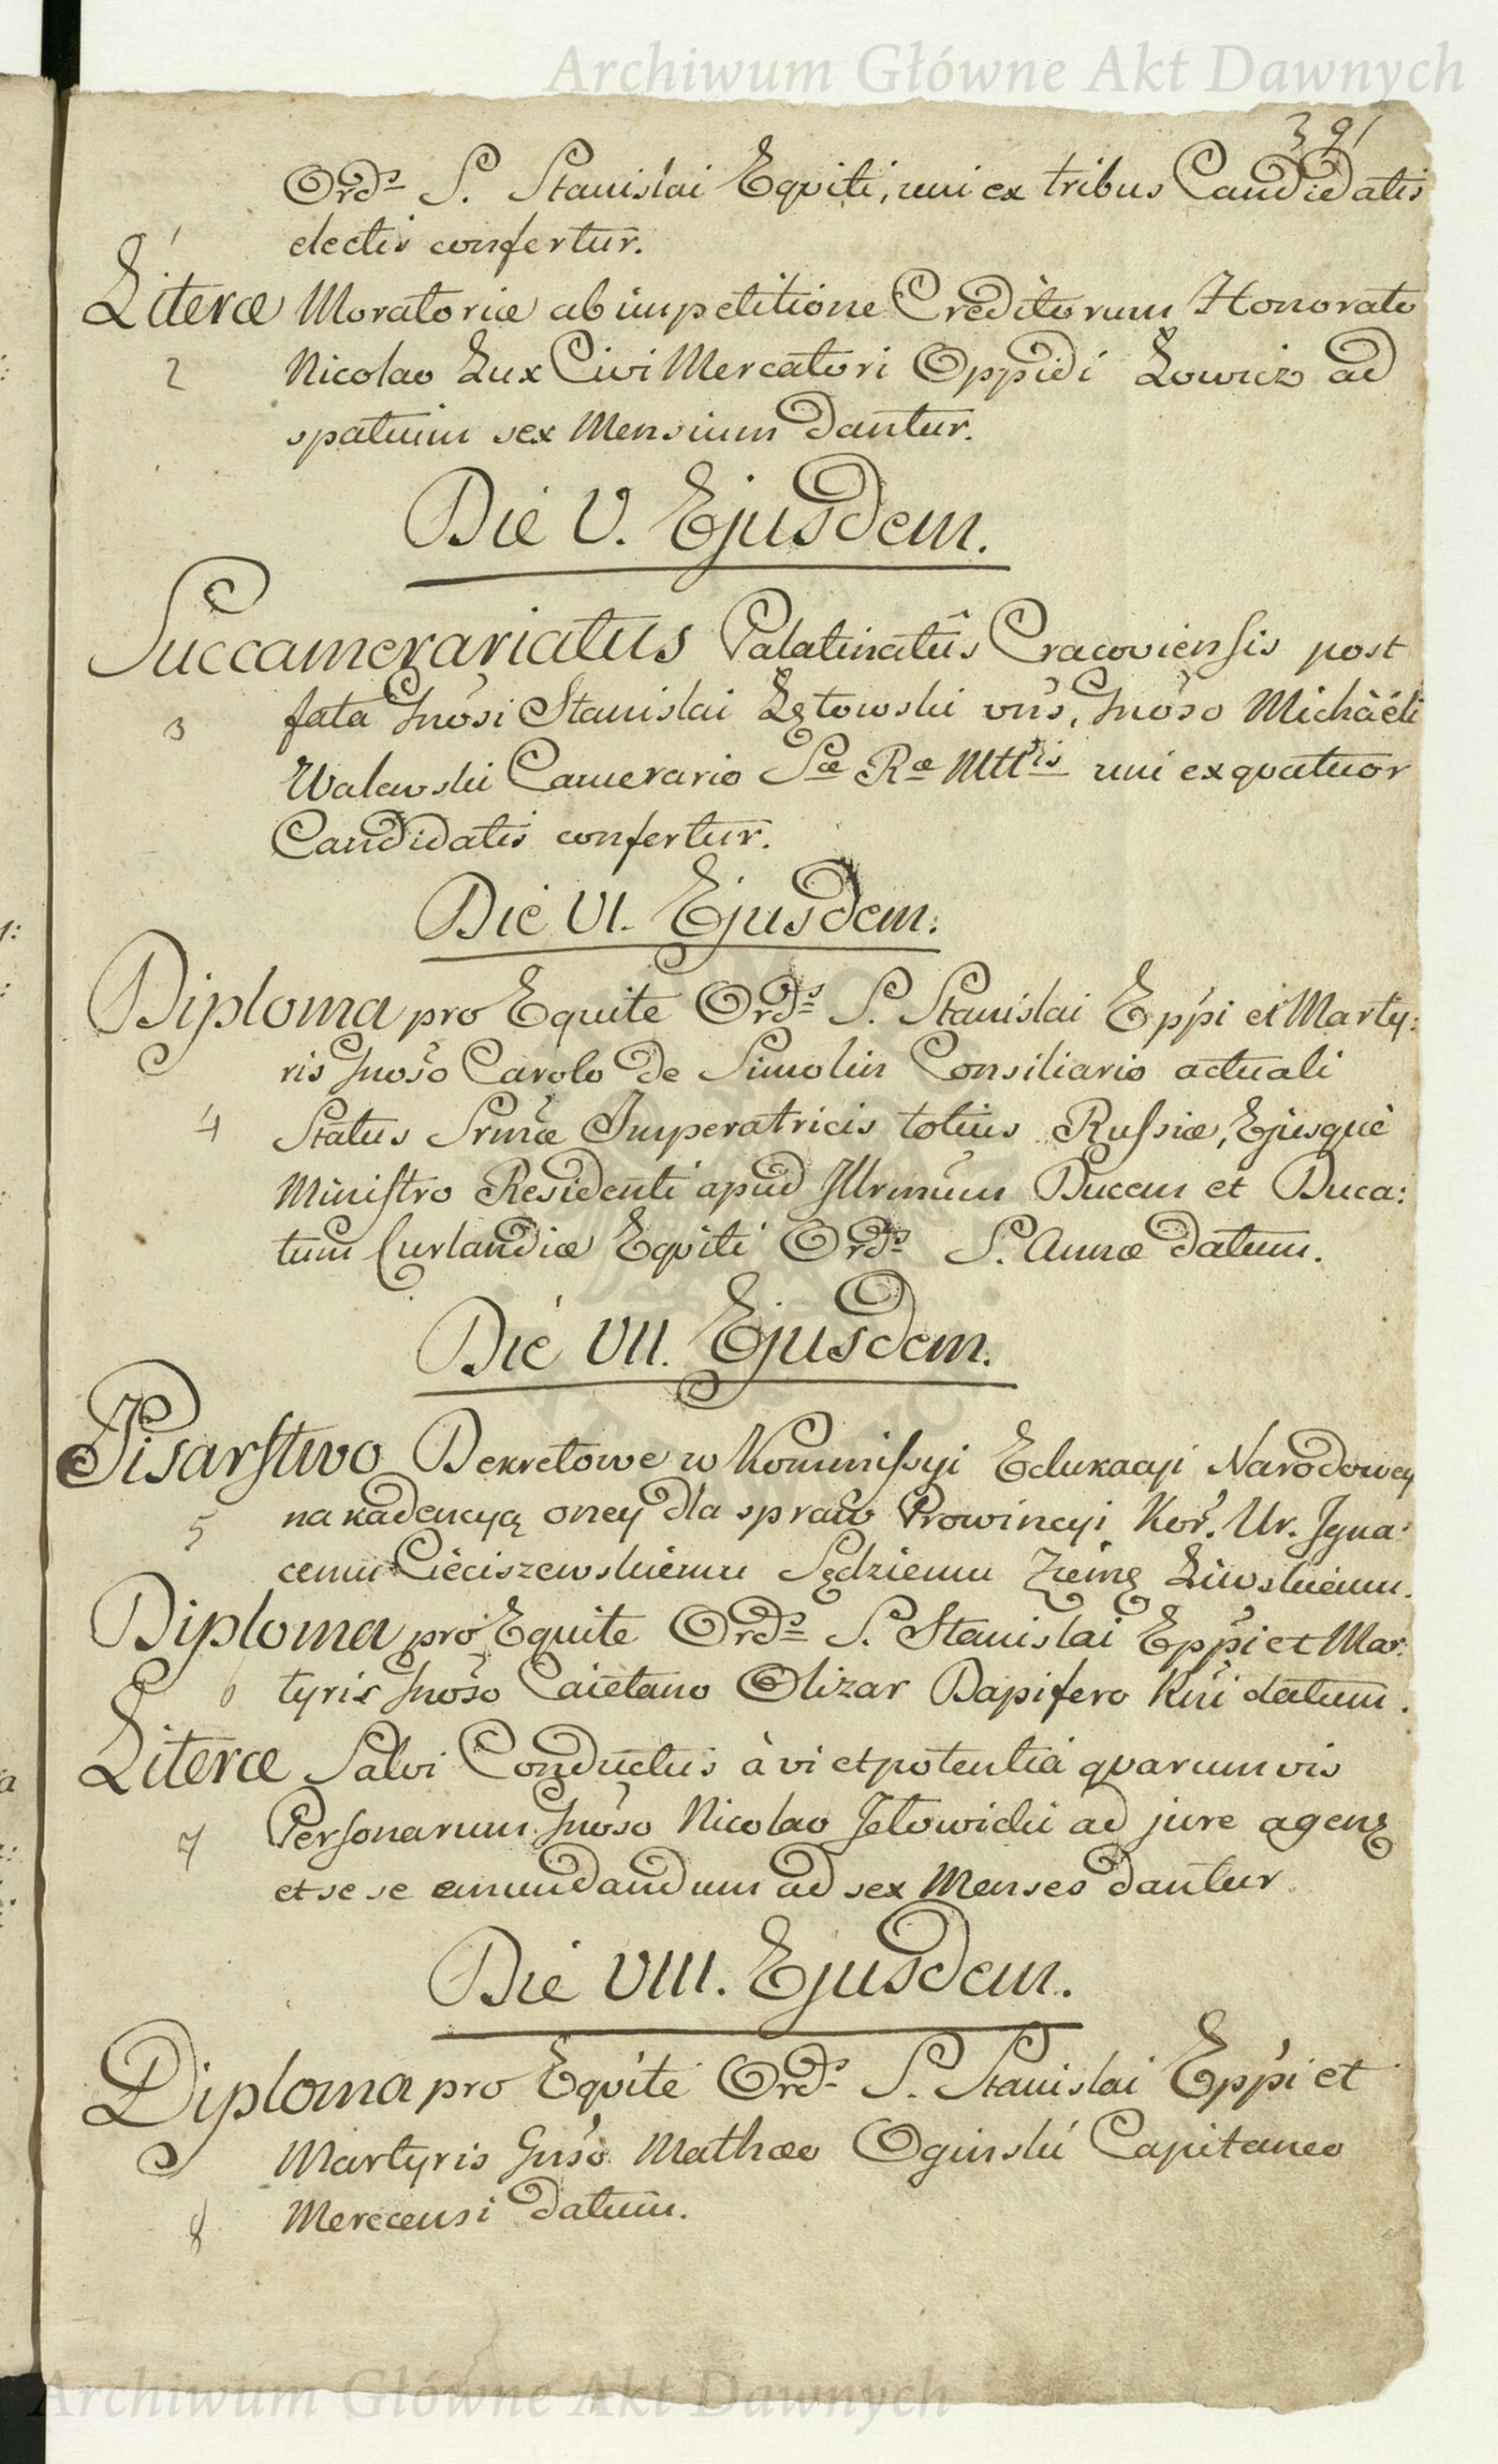 Archiwum Główne Akt Dawnych
391
Ordˢ S. Stanislai Equiti, uni ex tribus Candidatis
electis confertur.
1
Literæ Moratoriæ ab impetitione Creditorum Honorato
2 Nicolao Lux Civi Mercatori Oppidi Lowicz ad
spatium sex Mensium dantur.
Die V. Ejusdem.
Succamerariatus Palatinatûs Cracoviensis post
3 fata Gnosi Stanislai Łętowski vris, Gnoso Michaëli
Walewski Camerario Sæ Ræ Mttis uni ex quatuor
Candidatis confertur.
Die VI. Ejusdem.
Diploma pro Equite Ordˢ S. Stanislai Eppi et Marty:
ris Gnoso Carolo de Simolin Consiliario actuali
4 Status Srmæ Imperatricis totius Russiæ, Ejusque
Ministro Residenti apud Illrmum Ducem et Duca:
tum Curlandiæ Equiti Ordˢ S. Annæ datum.
Die VII. Ejusdem.
Pisarstwo Dekretowe w Kommissyi Edukacyi Narodowey
5 na kadencyą oney dla spraw Prowincyi Kor. Ur. Igna:
cemu Cieciszewskiemu Sędziemu Ziemę Liwskiemu.
Diploma pro Equite Ordˢ S. Stanislai Eppi et Mar:
6 tyris Gnoso Caietano Olizar Dapifero datum.
Literæ Salvi Conductus à vi et potentia quarumvis
7 Personarum Gnoso Nicolao Jełowicki ad jure agend
et se se emundandum ad sex Menses dantur.
Die VIII. Ejusdem.
Diploma pro Equite Ordˢ S. Stanislai Eppi et
Martyris Gnso Mathæo Oginski Capitaneo
8 Merecensi datum.
Archiwum Główne Akt Dawnych